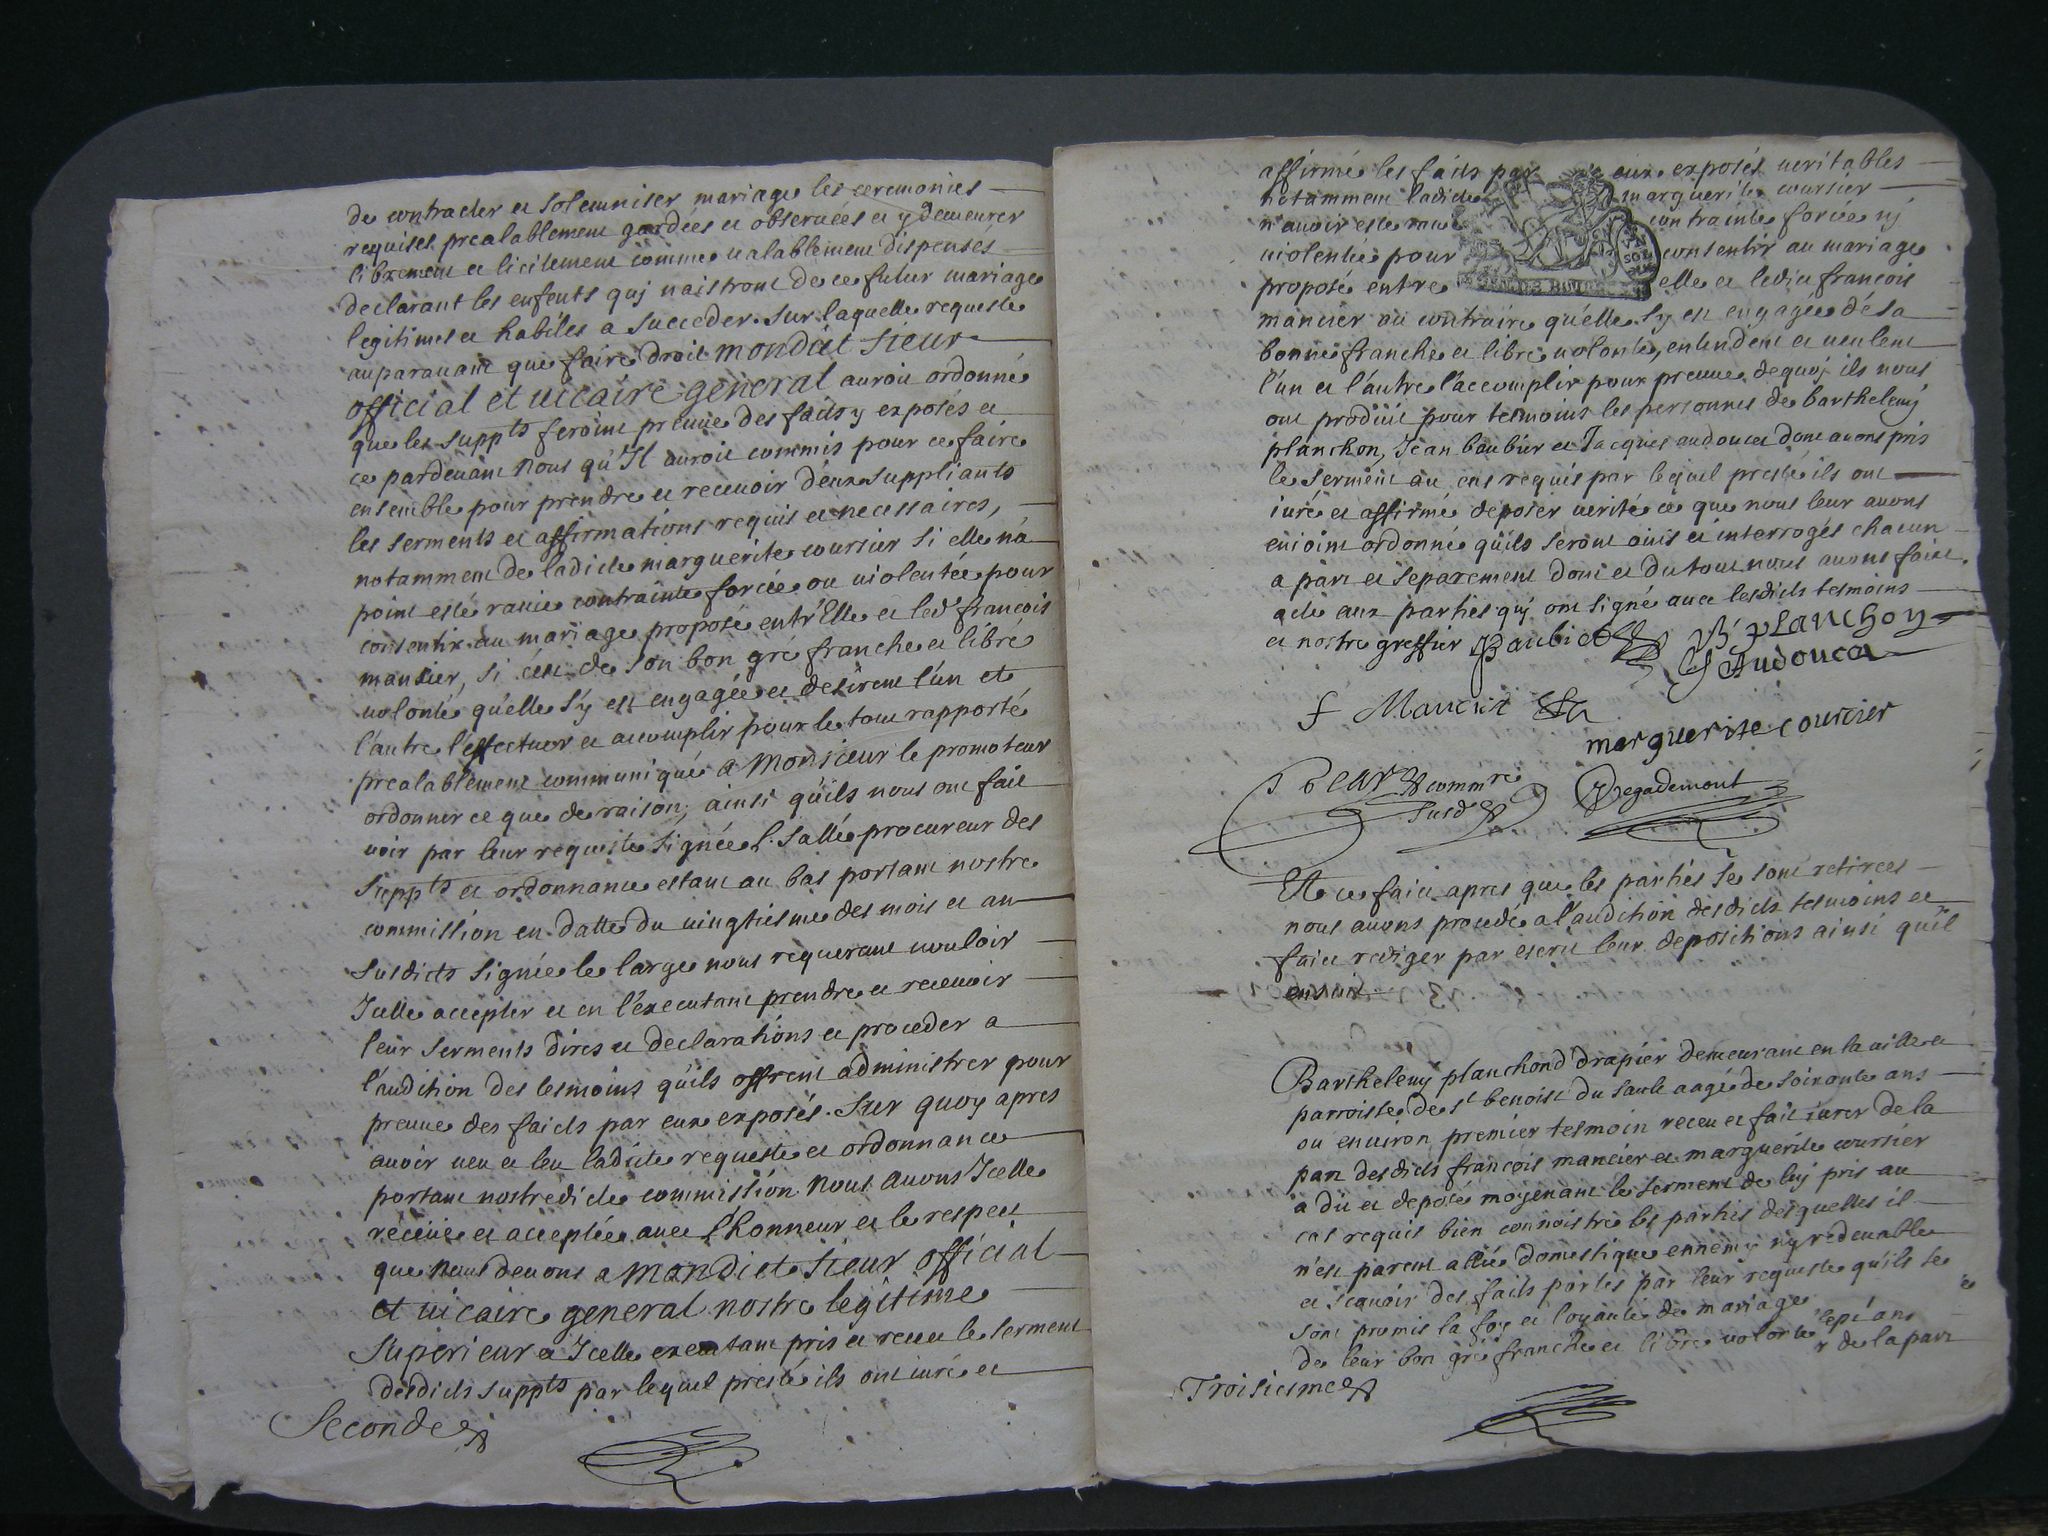 de contracter et solemniser mariage les ceremonies
requises prealablement gardées et obseruées et y demeurer
librement et licitement comme ualablement dispensés
declarant les enfents quj naistront de ce futur mariage
legitimes et habiles a succeder. sur laquelle requeste
auparauant que faire droit mondict sieur
official et uicaire general auroit ordonné
que les suppts feroint preuue des faits y exposés et
ce pardeuant nous qu'Il auroit commis pour ce faire
ensemble pour prendre et receuoir d'eux suppliants
les serments et affirmations requis et necessaires,
notamment de ladicte marguerite courrier si elle n'a
point esté rauie contrainte forcée ou uiolentée pour
consentir au mariage proposé entr'Elle et led françois
mancier, si c'est de son bon gré franche et libre
uolonté qu'elle s'y est engagée et desirent l'un et
l'autre l'effectuer et accomplir pour le tout rapporté
prealablement communiqué a Monsieur le promoteur
ordonner ce que de raison; ainsi qu'ils nous ont fait
uoir par leur requeste signée l. sallé procureur des
suppts et ordonnance estant au bas portant nostre
commission en datte du uingtiesme des mois et an
susdicts signée le large nous requerant uouloir
Icelle accepter et en l'executant prendre et receuoir
leur serments dires et declarations et proceder a
l'audition des tesmoins qu'ils offrent administrer pour
preuue des faicts par eux exposés. Sur quoy apres
auoir ueu et leu ladicte requeste et ordonnance
portant nostredicte commission nous auons Icelle
receüe et acceptée auec l'honneur et le respect
que nous deuons a mondict sieur official
et uicaire general nostre legitime
superieur et Icelle executant pris et receu le serment
desdicts suppts par lequel presté ils ont iuré et
Seconde
affirmé les faits par eux exposés ueritables
notamment ladicte marguerite courrier
n'auoir esté rauie contrainte forcée nj
uiolentée pour consentir au mariage
proposé entre elle et ledict françois
mancier au contraire qu'elle s'y est engagée de sa
bonne franche et libre uolonté, entendent et ueulent
l'un et l'autre l'accomplir pour preuue dequoj ils nous
ont produit pour tesmoins les personnes de barthelemj
planchon, Jean baubiet et Jacques audoucet dont auons pris
le serment au cas requis par lequel presté ils ont
iuré et affirmé deposer uerité ce que nous leur auons
enioint ordonné qu'ils seront ouis et interrogés chacun
a part et separement dont et du tout nous auons faict
acte aux parties quj ont signé auec lesdicts tesmoins
et nostre greffier Baubiet B planchon
J Audoucet
f Mancier
marguerite courcier
commre Degademont
susd
Et ce faict apres que les parties se sont retirees
nous auons procedé a l'audition desdicts tesmoins et
faict rediger par escrit leur depositions ainsi qu'il
ensuit.
Barthelemy planchond drapier demeurant en la uille et
parroisse de st benoist du sault aagé de soixante ans
ou enuiron premier tesmoin receu et fait iurer de la
part desdicts françois mancier et marguerite courrier
a dit et deposé moyenant le serment de luj pris au
cas requis bien connoistre les parties desquelles il
n'est parent allié domestique ennemy ny redeuable
et scauoir des faits portés par leur requeste qu'ils se
sont promis la foy et loyauté de mariage
de leur bon gré franche et libre uolonté
r de la part
Troisiesme